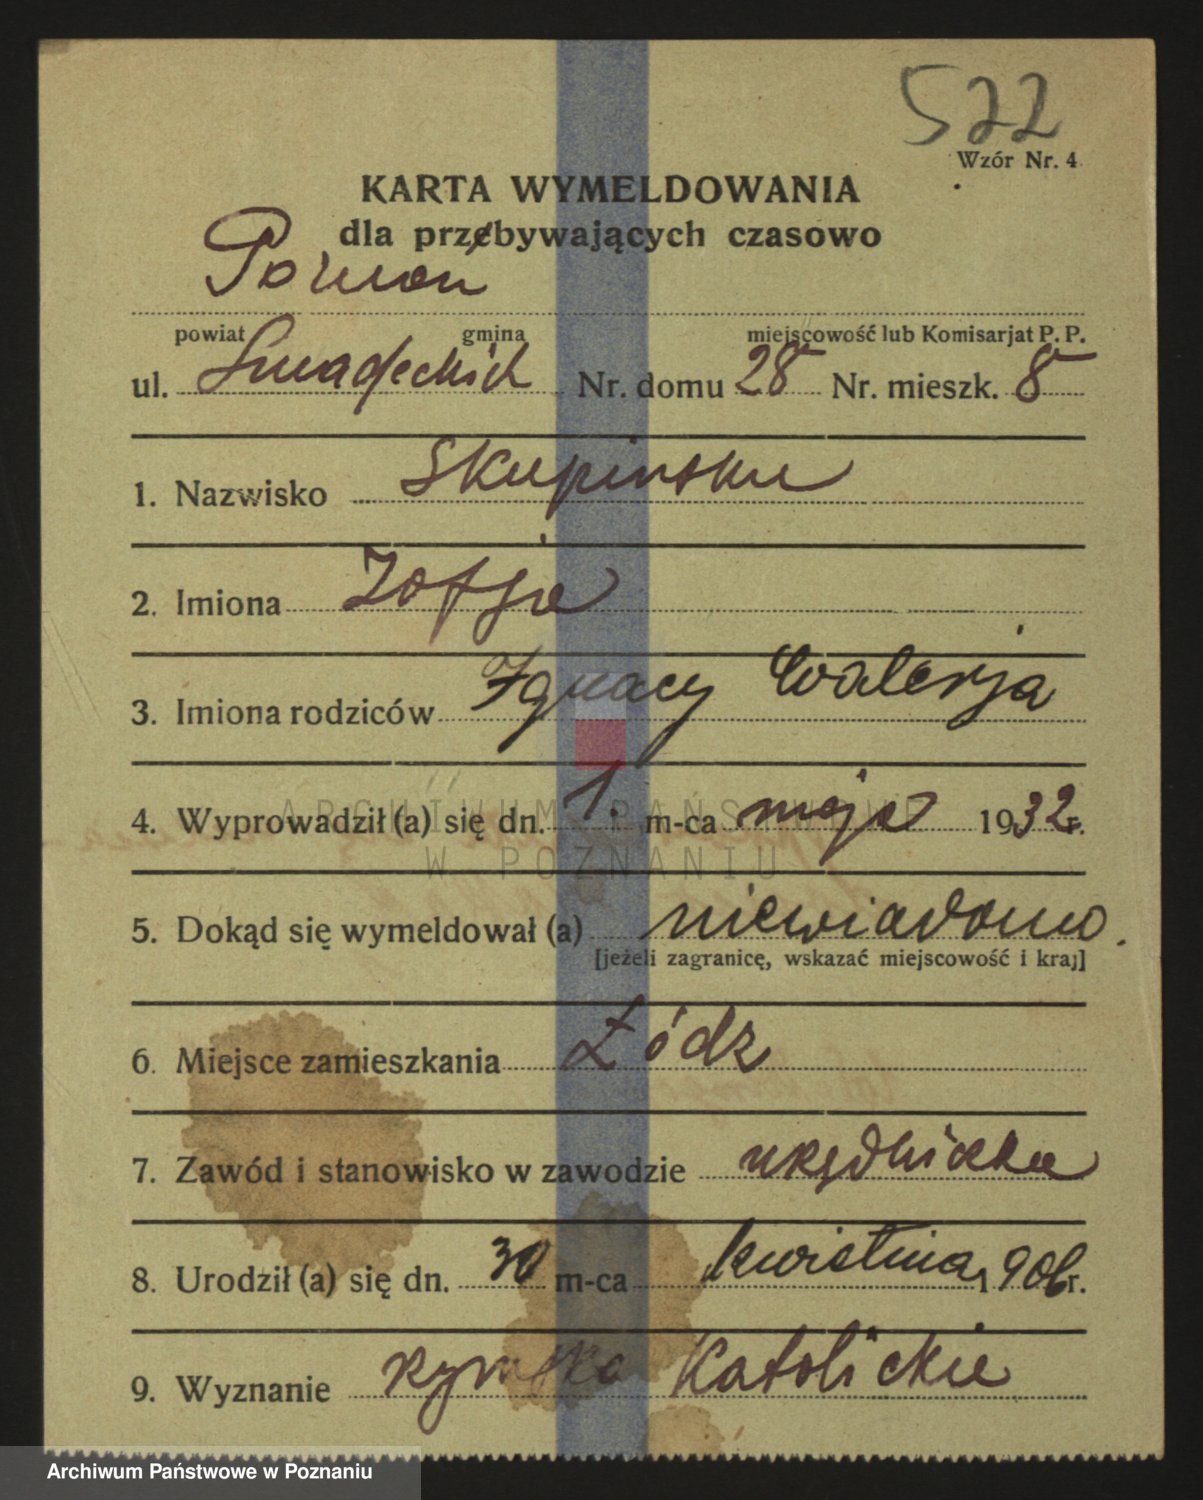 522
Wzór Nr. 4
KARTA WYMELDOWANIA
dla przebywających czasowo
Poznań
powiat gmina miejscowość lub Komisarjat P. P.
ul. Śniadeckich Nr. domu 28 Nr. mieszk. 8
1. Nazwisko Skupińska
2. Imiona Zofja
3. Imiona rodziców Ignacy Walerja
4. Wyprowadził (a) się dn. 1. m-ca maja 1932 r.
ARCHIWUM PAŃSTWOWE
W POZNANIU
5. Dokąd się wymeldował (a) niewiadomo.
[jeżeli zagranicę, wskazać miejscowość i kraj]
6. Miejsce zamieszkania Łódz
7. Zawód i stanowisko w zawodzie urzędniczka
8. Urodził (a) się dn. 30 m-ca kwietnia 1906 r.
9. Wyznanie rzymsko Katolickie
Archiwum Państwowe w Poznaniu